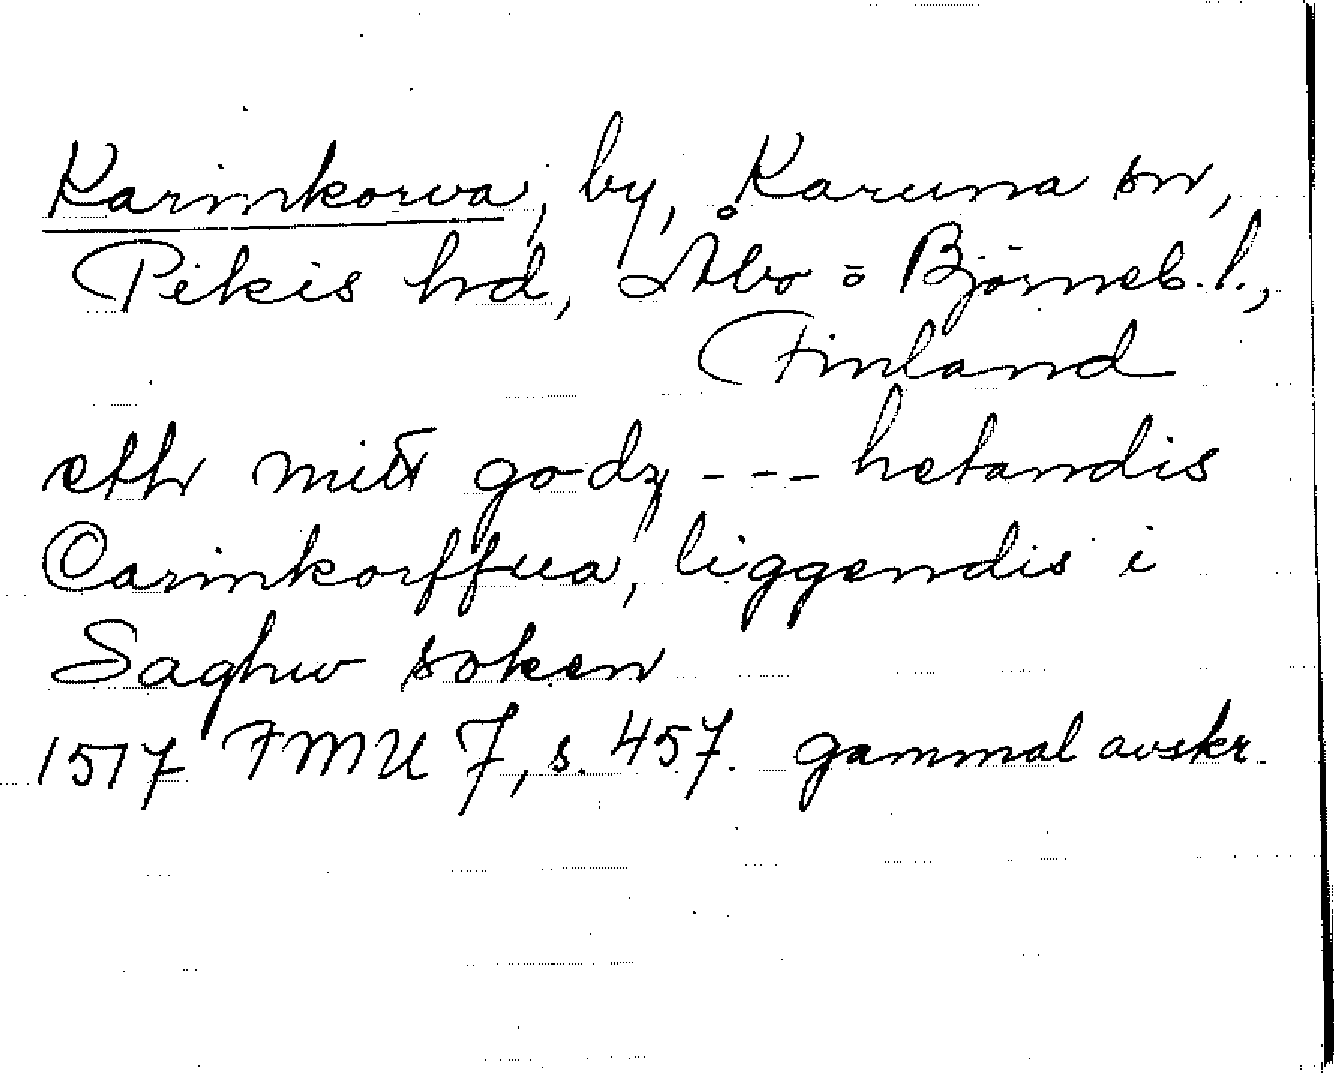 Karinkorva, by, Karuna sn,
Pikis hd, Åbo = Björneb. l.,
Finland
etth mitt godz --- hetandis
Carinkorffua, liggendis i
Saghw soken
1517 FMU 7, s. 457. gammal avskr.